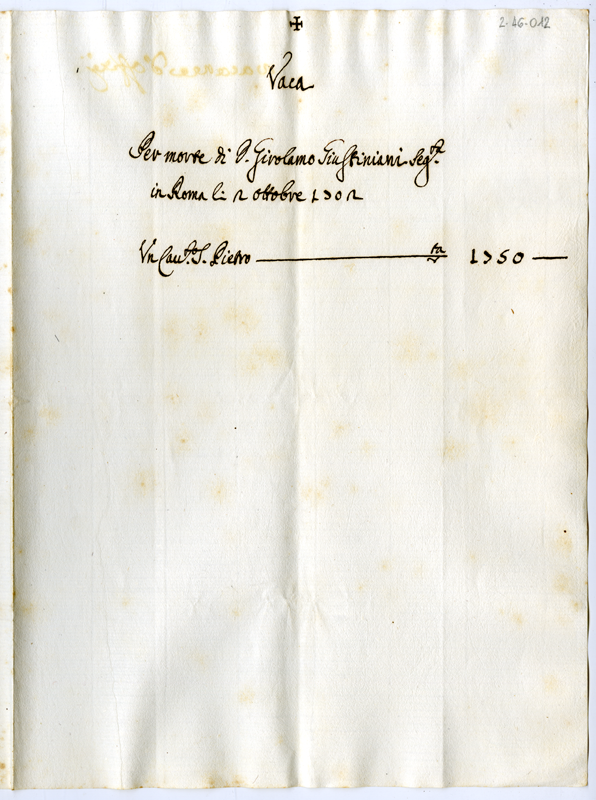 ✠
2-46-012
Vaca
Per morte di S. Girolamo Giustiniani Seg.ta
in Roma li 2 ottobre 1702
Vn Cau.to S. Pietro — ▽ta 1350 —